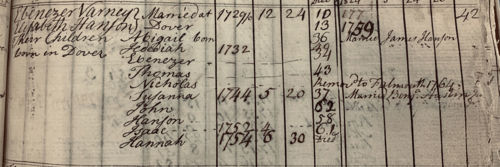 Ebenezer Varney Married at 1729/ 12 24 10 42
Elisabeth Hanson Dover 13 1759
Their Children Abigail born 36 Married James Hanson
born in Dover Jedediah 1732 39
Ebenezer 34
Thomas 43
Nicholas Remov'd to Falmouth 1764
Susanna 1744 5 20 37 Married Benj.
John 62
Hanson 58
Isaac 1752 4 61
Hannah 1754 8 30 Died